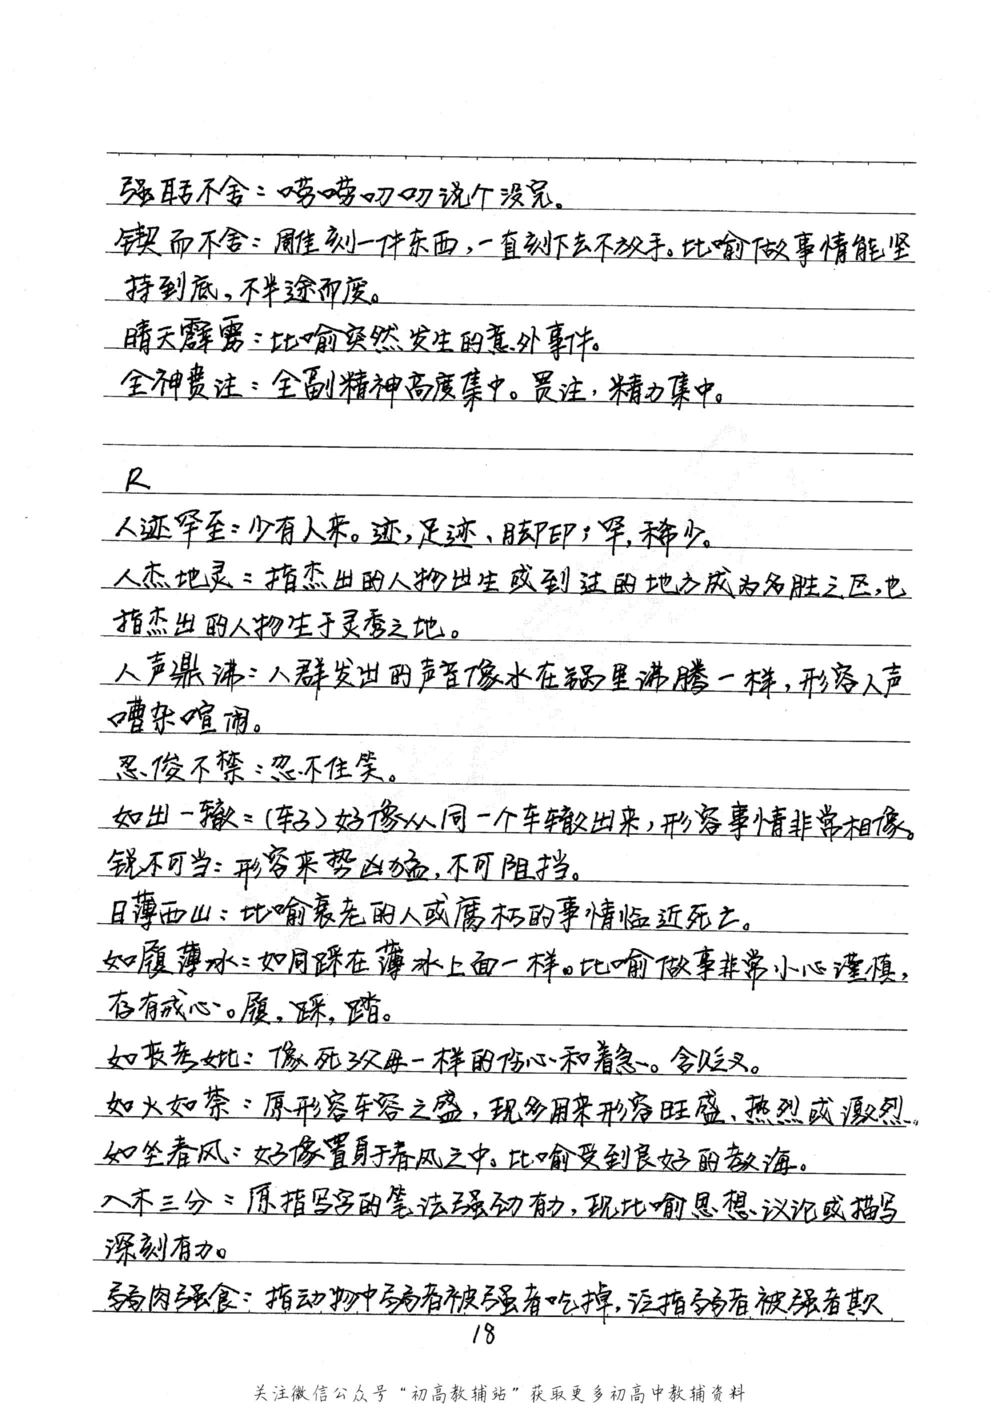 强聒不舍：唠唠叨叨说个没完。
锲而不舍：雕刻一件东西，一直刻下去不放手。比喻做事情能坚
持到底，不半途而废。
晴天霹雳：比喻突然发生的意外事件。
全神贯注：全副精神高度集中。贯注，精力集中。
R
人迹罕至：少有人来。迹，足迹、脚印；罕，稀少。
人杰地灵：指杰出的人物出生或到过的地方成为名胜之区，也
指杰出的人物生于灵秀之地。
人声鼎沸：人群发出的声音像水在锅里沸腾一样，形容人声
嘈杂喧闹。
忍俊不禁：忍不住笑。
如出一辙：（车子）好像从同一个车辙出来，形容事情非常相像。
锐不可当：形容来势凶猛，不可阻挡。
日薄西山：比喻衰老的人或腐朽的事情临近死亡。
如履薄冰：如同踩在薄冰上面一样。比喻做事非常小心谨慎，
存有戒心。履，踩，踏。
如丧考妣：像死了父母一样的伤心和着急。含贬义。
如火如荼：原形容军容之盛，现多用来形容旺盛、热烈或激烈。
如坐春风：好像置身于春风之中。比喻受到良好的教诲。
入木三分：原指写字的笔法强劲有力，现比喻思想议论或描写
深刻有力。
弱肉强食：指动物中弱者被强者吃掉，泛指弱者被强者欺
18
关注微信公众号“初高教辅站”获取更多初高中教辅资料